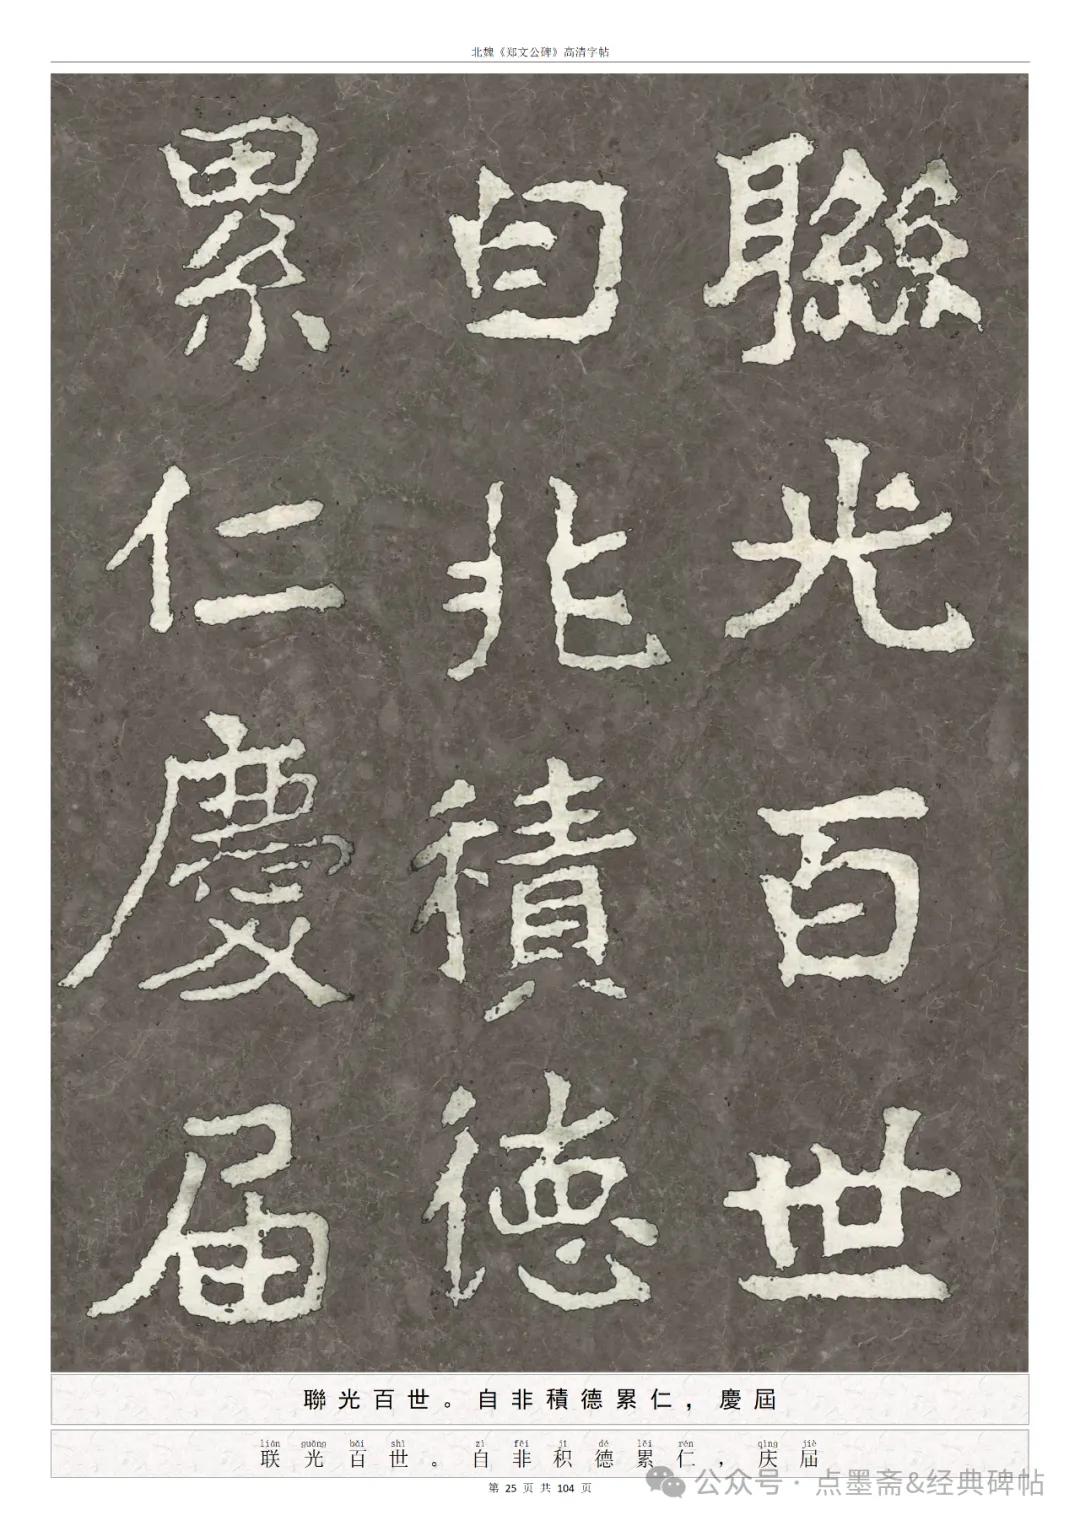 北魏《郑文公碑》高清字帖
聯光百世
自非積德
累仁慶屆
聯光百世。自非積德累仁，慶屆
lián guāng bǎi shì zì fēi jī dé lěi rén qìng jiè
联光百世。自非积德累仁，庆届
第 25 页 共 104 页
公众号 · 点墨斋&经典碑帖